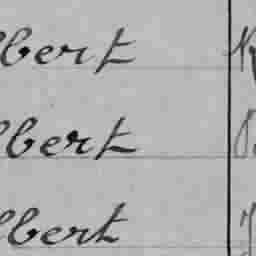 lbert
lbert
lbert